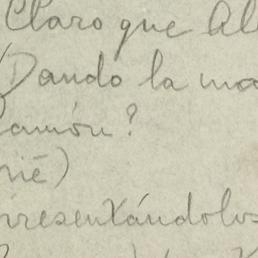 Claro que Al
(Dando la ma
Ramón?
rié)
rresentándolos